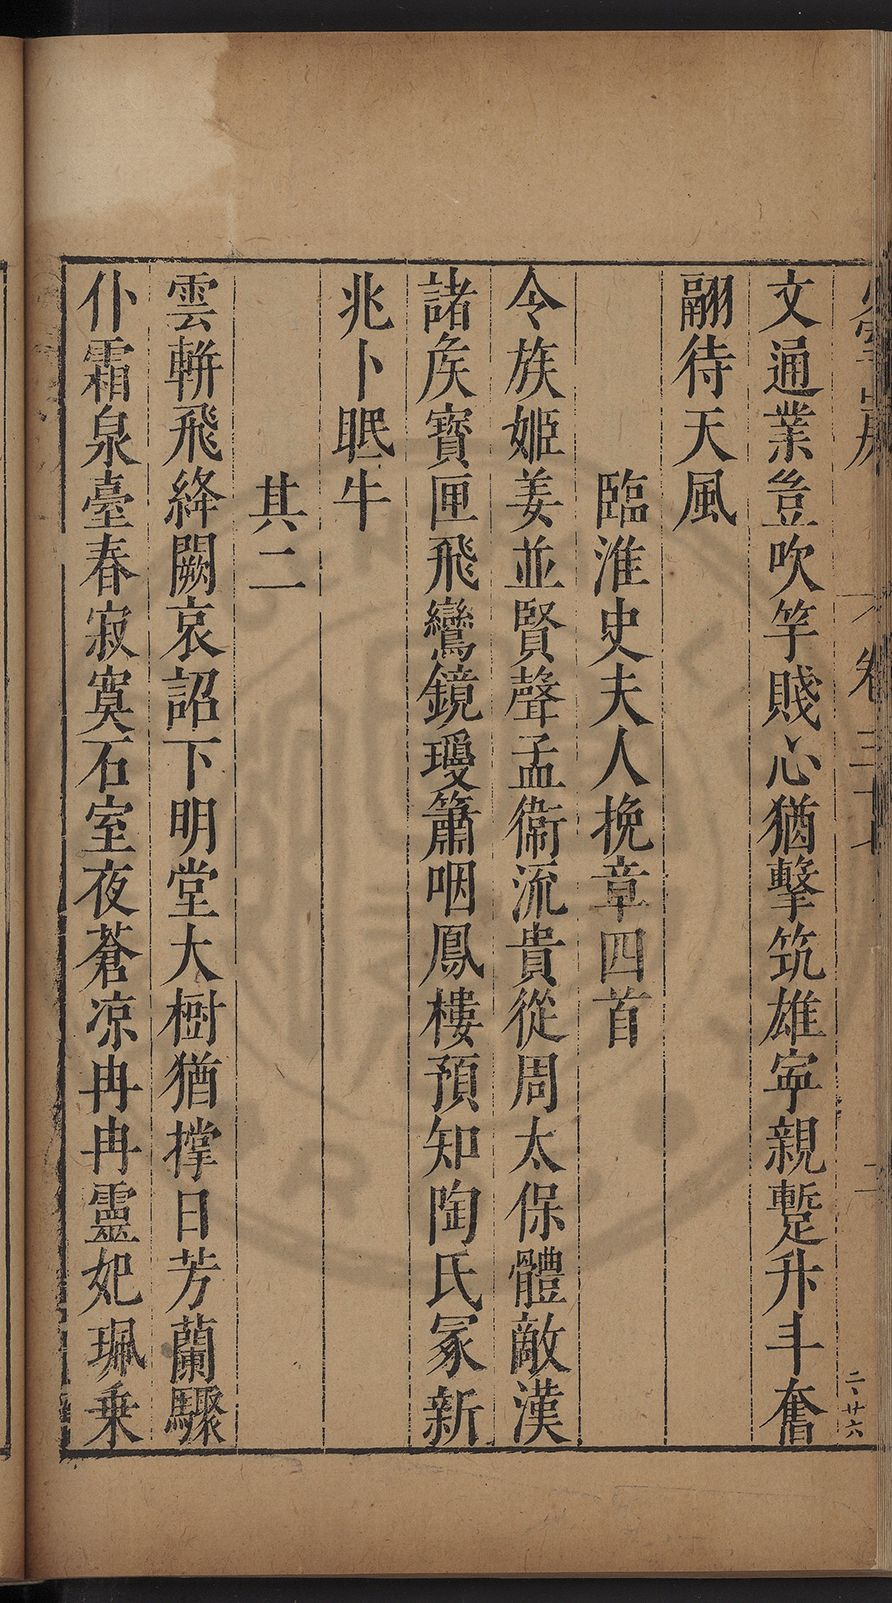 卷三十七
二
二、廿六
文通業豈吹竽賤心猶擊筑雄寜親蹔升斗奮
翮待天風
臨淮史夫人挽章四首
令族姬姜並賢聲孟衞流貴從周太保體敵漢
諸矦寳匣飛鸞鏡瓊簫咽鳳樓預知陶氏冢新
兆卜眠牛
其二
雲輧飛絳闕哀詔下明堂大樹猶撑日芳蘭驟
仆霜泉臺春寂寞石室夜蒼凉冉冉靈妃珮乗